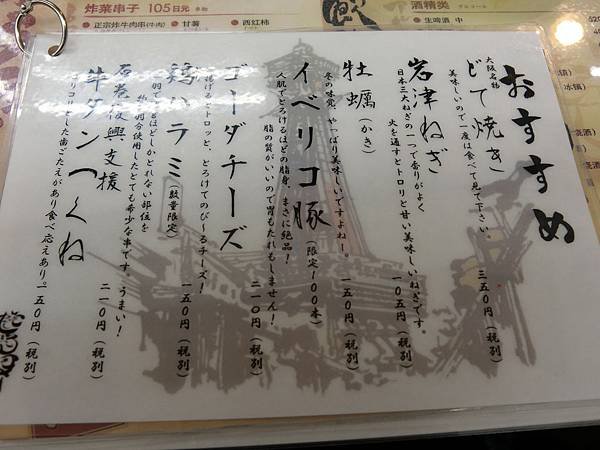 炸菜串子 105日元
・正宗炸牛肉串(牛肉)
・甘薯
・西红柿
酒精类
・生啤酒 中
おすすめ
大阪名物
どて焼き
美味しいので一度は食べて見て下さい。
三五〇円(税別)
岩津ねぎ
日本三大ねぎの一つで香りがよく
火を通すとトロリと甘い美味しいねぎです。
一〇五円(税別)
牡蠣(かき)
冬の味覚、やっぱり美味しいですよねー。
一五〇円(税別)
イベリコ豚(限定100本)
人肌でとろけるほどの脂身、まさに絶品!
脂の質がいいので胃もたれもしません!
二一〇円(税別)
ゴーダチーズ
揚げるとトロッと、とろけてのび〜るチーズ!
一五〇円(税別)
鶏ハラミ(数量限定)
一羽で
ほどしかとれない部位を
使用したとても希少な串です。うまい!
二一〇円(税別)
石巻復興支援
牛タンつくね
コリコリとした歯ごたえがあり食べ応えあり。
一五〇円(税別)